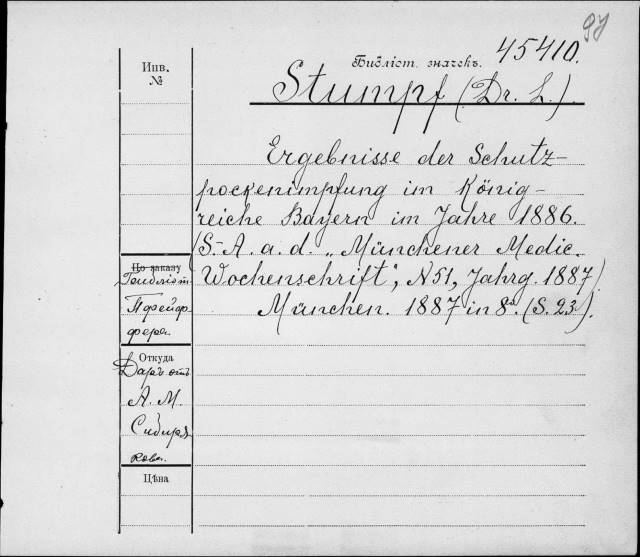 97
Библіот. значекъ. 45410.
Инв.
№
Stumpf (Dr. L.).
Ergebnisse der Schutz-
pockenimpfung im König-
reiche Bayern im Jahre 1886.
(S.-A. a. d. „Münchener Medic.
Wochenschrift", N 51, Jahrg. 1887)
München. 1887 in 8º. (S. 23).
По заказу
Пфейф-
фера.
Откуда
Даръ отъ
А. М.
Сибиря
кова.
Цѣна